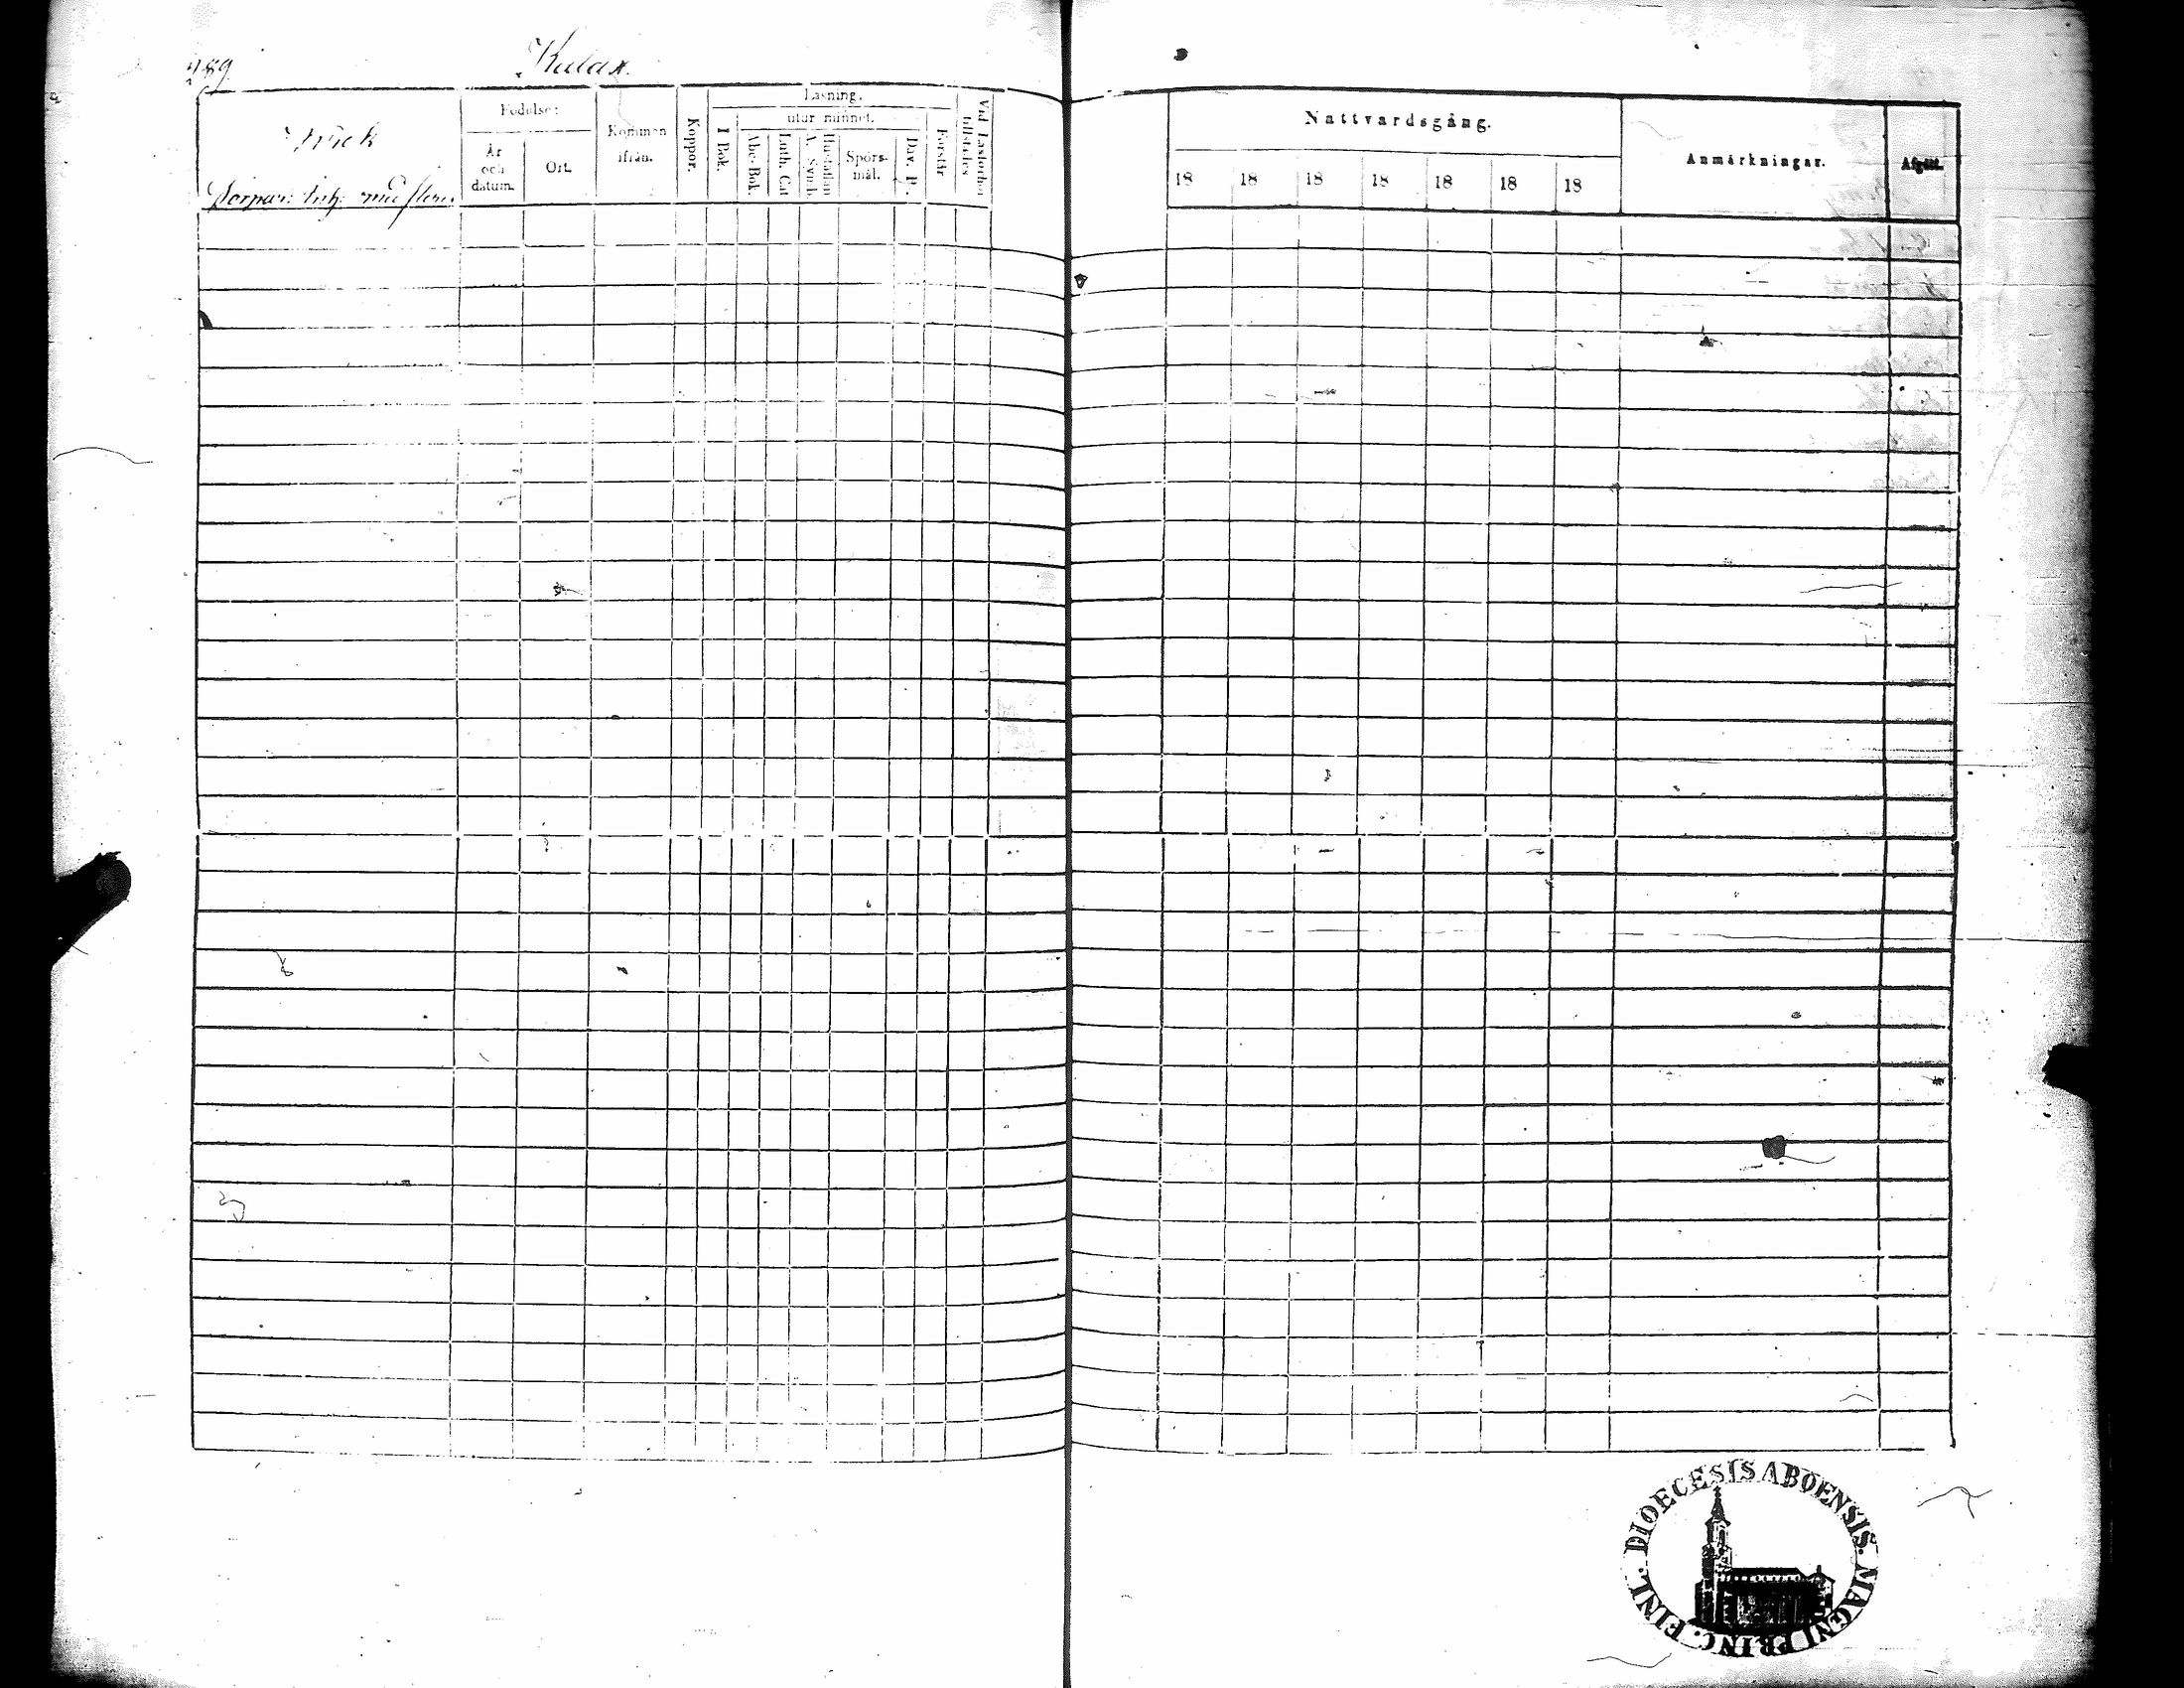 289.
Kulax.
Födelse:
År
och
datum.
Ort.
Kommen
ifrån.
Koppor.
Läsning.
I Bok.
utur minnet.
Abc-Bok.
Luth. Cat
A. Symb.
Hustaflan
Spörs-
mål.
Dav. P.
Förstår
Vid Läsförhör
tillstädes.
Nattvardsgång.
18 18 18 18 18 18 18
Anmärkningar.
Afgått.
DIOECESIS ABOENSIS. MAGNI PRINC. FINL.